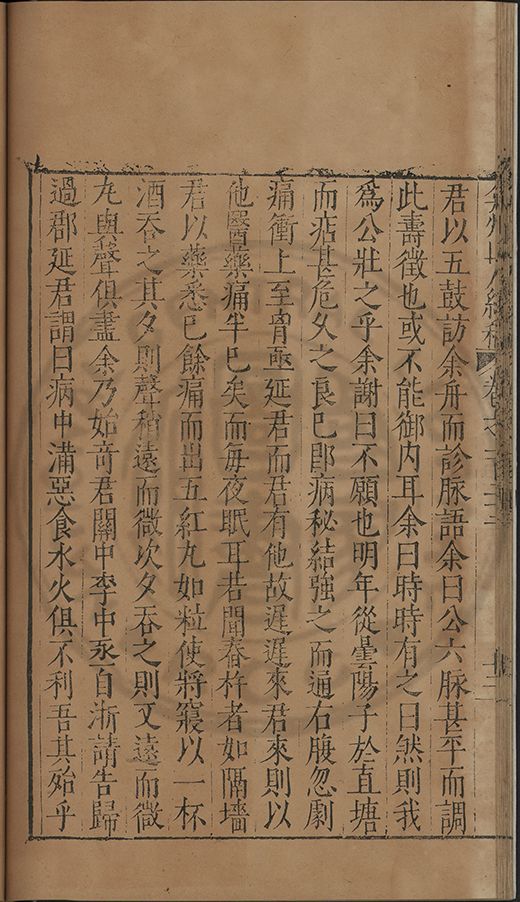 君以五鼓訪余舟而診脉語余曰公六脉甚平而調
此壽徵也或不能御内耳余曰時時有之曰然則我
爲公壯之乎余謝曰不願也明年從曇陽子於直塘
而痁甚危久之良已卽病秘結強之而通右腹忽劇
痛衝上至胷亟延君而君有他故遲遲來君來則以
他醫藥痛半已矣而每夜眠耳若聞舂杵者如隔墻
君以藥悉已餘痛而出五紅丸如粒使將寢以一杯
酒吞之其夕則聲稍遠而微次夕吞之則又遠而微
丸與聲俱盡余乃始竒君關中李中丞自浙請告歸
過郡延君謂曰病中滿惡食水火俱不利吾其殆乎
卷之一百